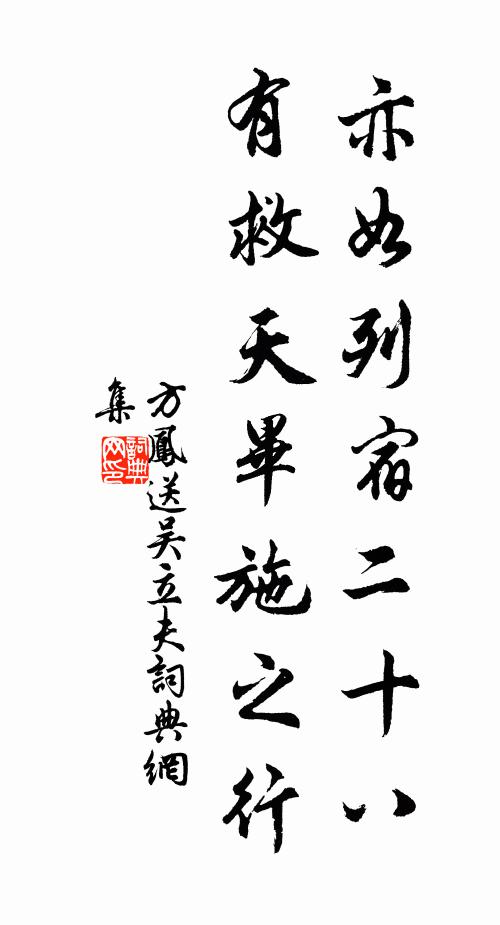 亦如列宿二十八
有救天畢施之行
方鳳送吳立夫詞典網
集
詞典
网印